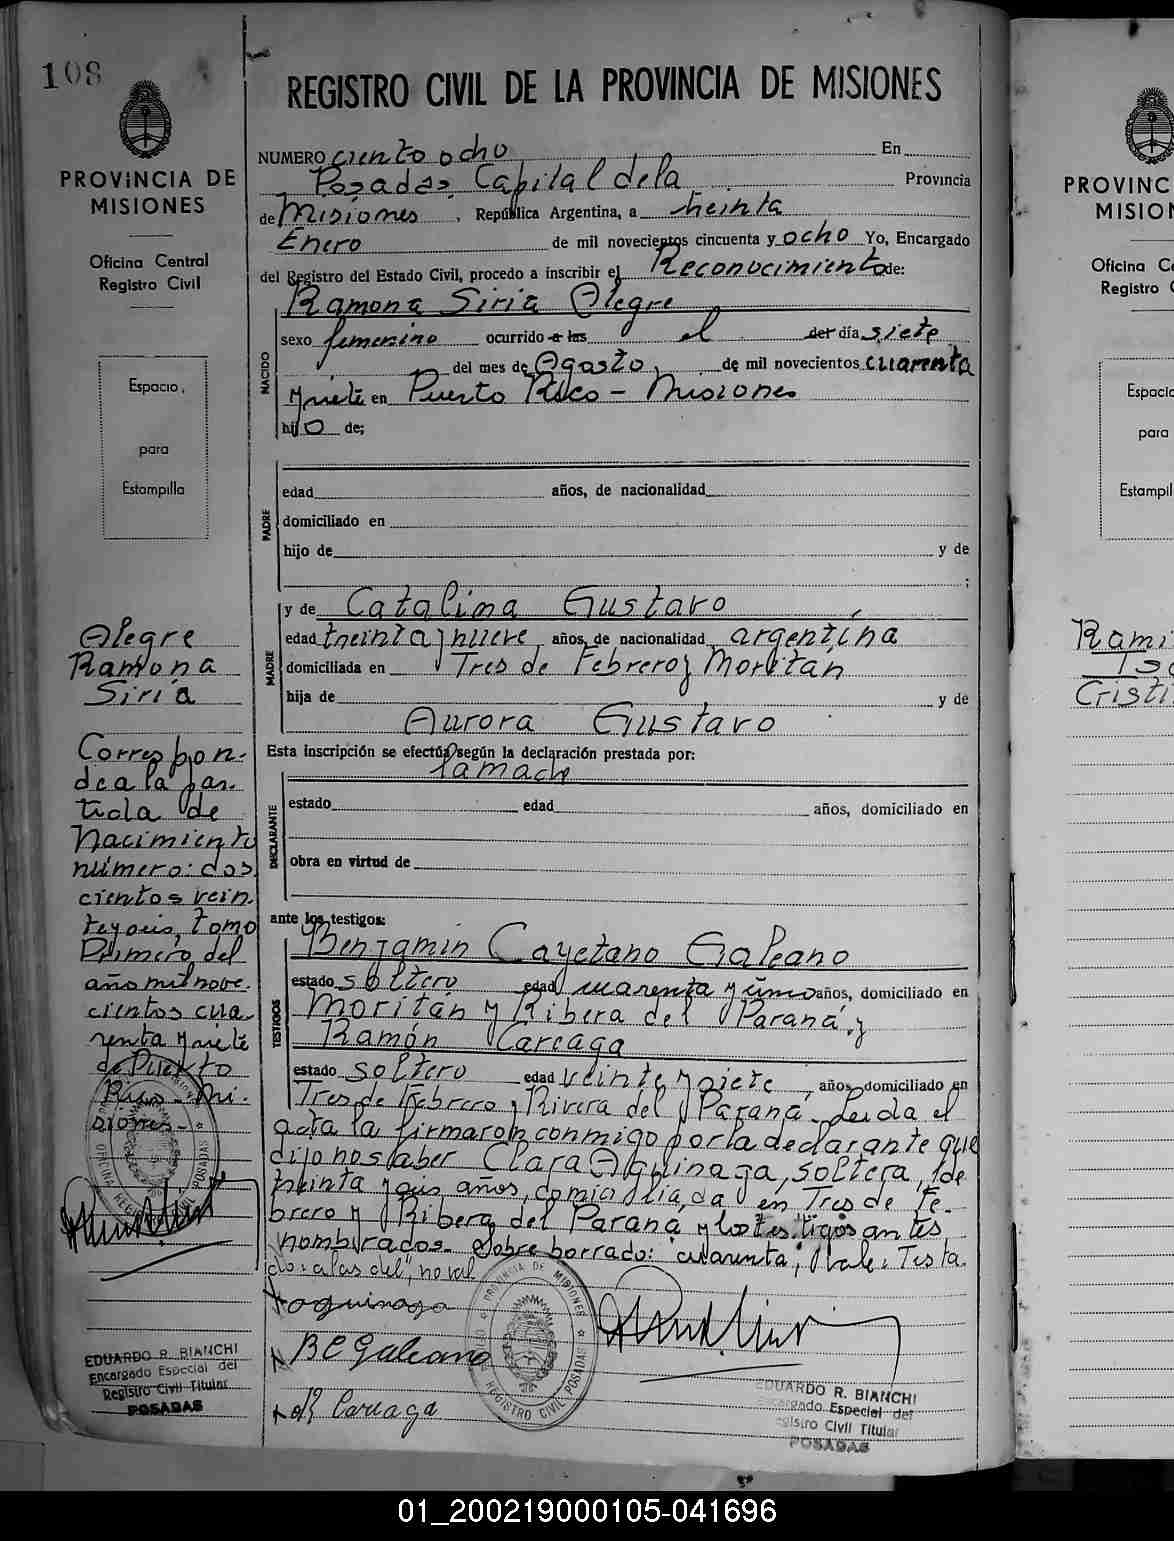 108
PROVINCIA DE
MISIONES
Oficina Central
Registro Civil
Espacio
para
Estampilla
Alegre
Ramona
Siria
Correspon-
de a la par-
tida de
Nacimiento
número: dos
cientos vein
teyseis, tomo
Primero del
año mil nove-
cientos cua-
renta y siete
de Puerto
Rico - Mi-
siones -
EDUARDO R. BIANCHI
Encargado Especial del
Registro Civil Titular
POSADAS
REGISTRO CIVIL DE LA PROVINCIA DE MISIONES
NUMERO ciento ocho En
Posadas, Capital de la Provincia
de Misiones, República Argentina, a treinta
Enero de mil novecientos cincuenta y ocho Yo, Encargado
del Registro del Estado Civil, procedo a inscribir el Reconocimiento de:
Ramona Siria Alegre
NACIDO
sexo femenino ocurrido a las el del día siete
del mes de Agosto, de mil novecientos cuarenta
y siete en Puerto Rico - Misiones
hijo de;
PADRE
edad años, de nacionalidad
domiciliado en
hijo de y de
;
MADRE
y de Catalina Gustavo
edad treinta y nueve años, de nacionalidad argentina
domiciliada en Tres de Febrero y Moritán
hija de y de
Aurora Gustavo
Esta inscripción se efectúa según la declaración prestada por:
la madre
DECLARANTE
estado edad años, domiciliado en
obra en virtud de
ante los testigos:
TESTIGOS
Benjamin Cayetano Galeano
estado soltero edad cuarenta y uno años, domiciliado en
Moritán y Ribera del Paraná y
Ramón Careaga
estado soltero edad veinte y siete, años domiciliado en
Tres de Febrero y Rivera del Paraná. Leida el
acta la firmaron conmigo por la declarante que
dijo no saber Clara Aguinaga, soltera, de
treinta y seis años, domiciliada en Tres de Fe-
brero y Ribera del Paraná y los testigos antes
nombrados - Sobre borrado: cuarenta; Vale: Testa
do: a las del", no val
Aguinaga
B C Galeano
R Careaga
PROVINCIA DE MISIONES
REGISTRO CIVIL POSADAS
EDUARDO R. BIANCHI
Encargado Especial del
Registro Civil Titular
POSADAS
PROVINC
MISION
Oficina Ce
Registro C
Espacio
para
Estampil
Rami
Isa
Cristi
01_200219000105-041696